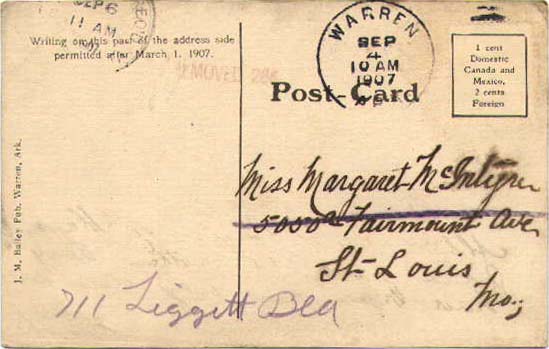 SEP 6
11 AM
Writing on this part of the address side
permitted after March 1, 1907.
REMOVED
WARREN
SEP
4
10 AM
1907
ARK
Post-Card
1 cent
Domestic
Canada and
Mexico,
2 cents
Foreign
J. M. Bailey Pub. Warren, Ark.
Miss Margaret McIntyre
5050a Fairmount Ave
St Louis
Mo.,
711 Liggett Bld